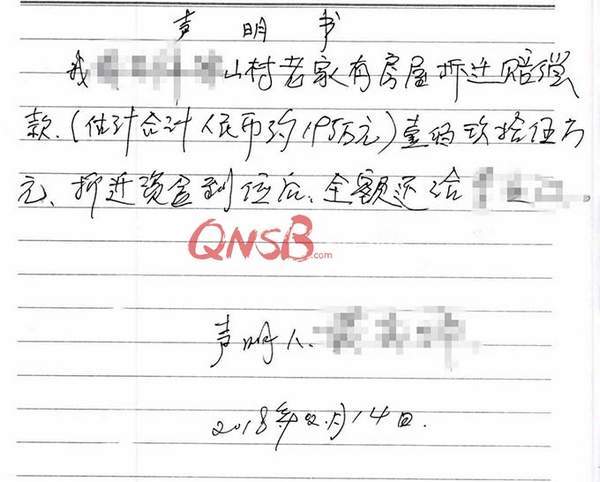 声明书
我山村老家有房屋拆迁赔偿
款.(估计合计人民币约195万元)壹佰玖拾伍万
元、拆迁资金到位后、全额还给。
QNSB.com
声明人.
2018年2月14日.